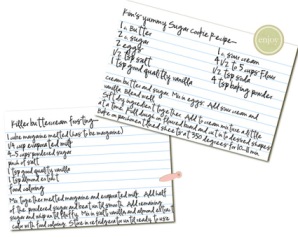 Kim's yummy Sugar cookie Recipe
enjoy
1 c butter
2 c sugar
2 eggs
1/2 tsp salt
1 tsp good quality vanilla
1 c sour cream
4 1/2 to 5 cups flour
1/2 tsp soda
4 tsp baking powder
cream butter and sugar. Mix in eggs. Add sour cream and
vanilla. blend well.
Sift dry ingredients together. Add to cream mixture a little
at a time. Roll dough on floured board and cut into desired shapes
Bake on parchment lined sheets at 350 degrees for 10 min
Killer buttercream frosting
1 cube margarine melted (has to be margarine)
1/4 cup evaporated milk
4-5 cups powdered sugar
pinch of salt
1 tsp good quality vanilla
1 tsp almond extract
food coloring
Mix together melted margarine and evaporated milk. Add half
of the powdered sugar and beat until smooth. Add remaining
sugar and whip until fluffy. Mix in salt, vanilla and almond extract
color with food coloring. Store in refrigerator until ready to use.